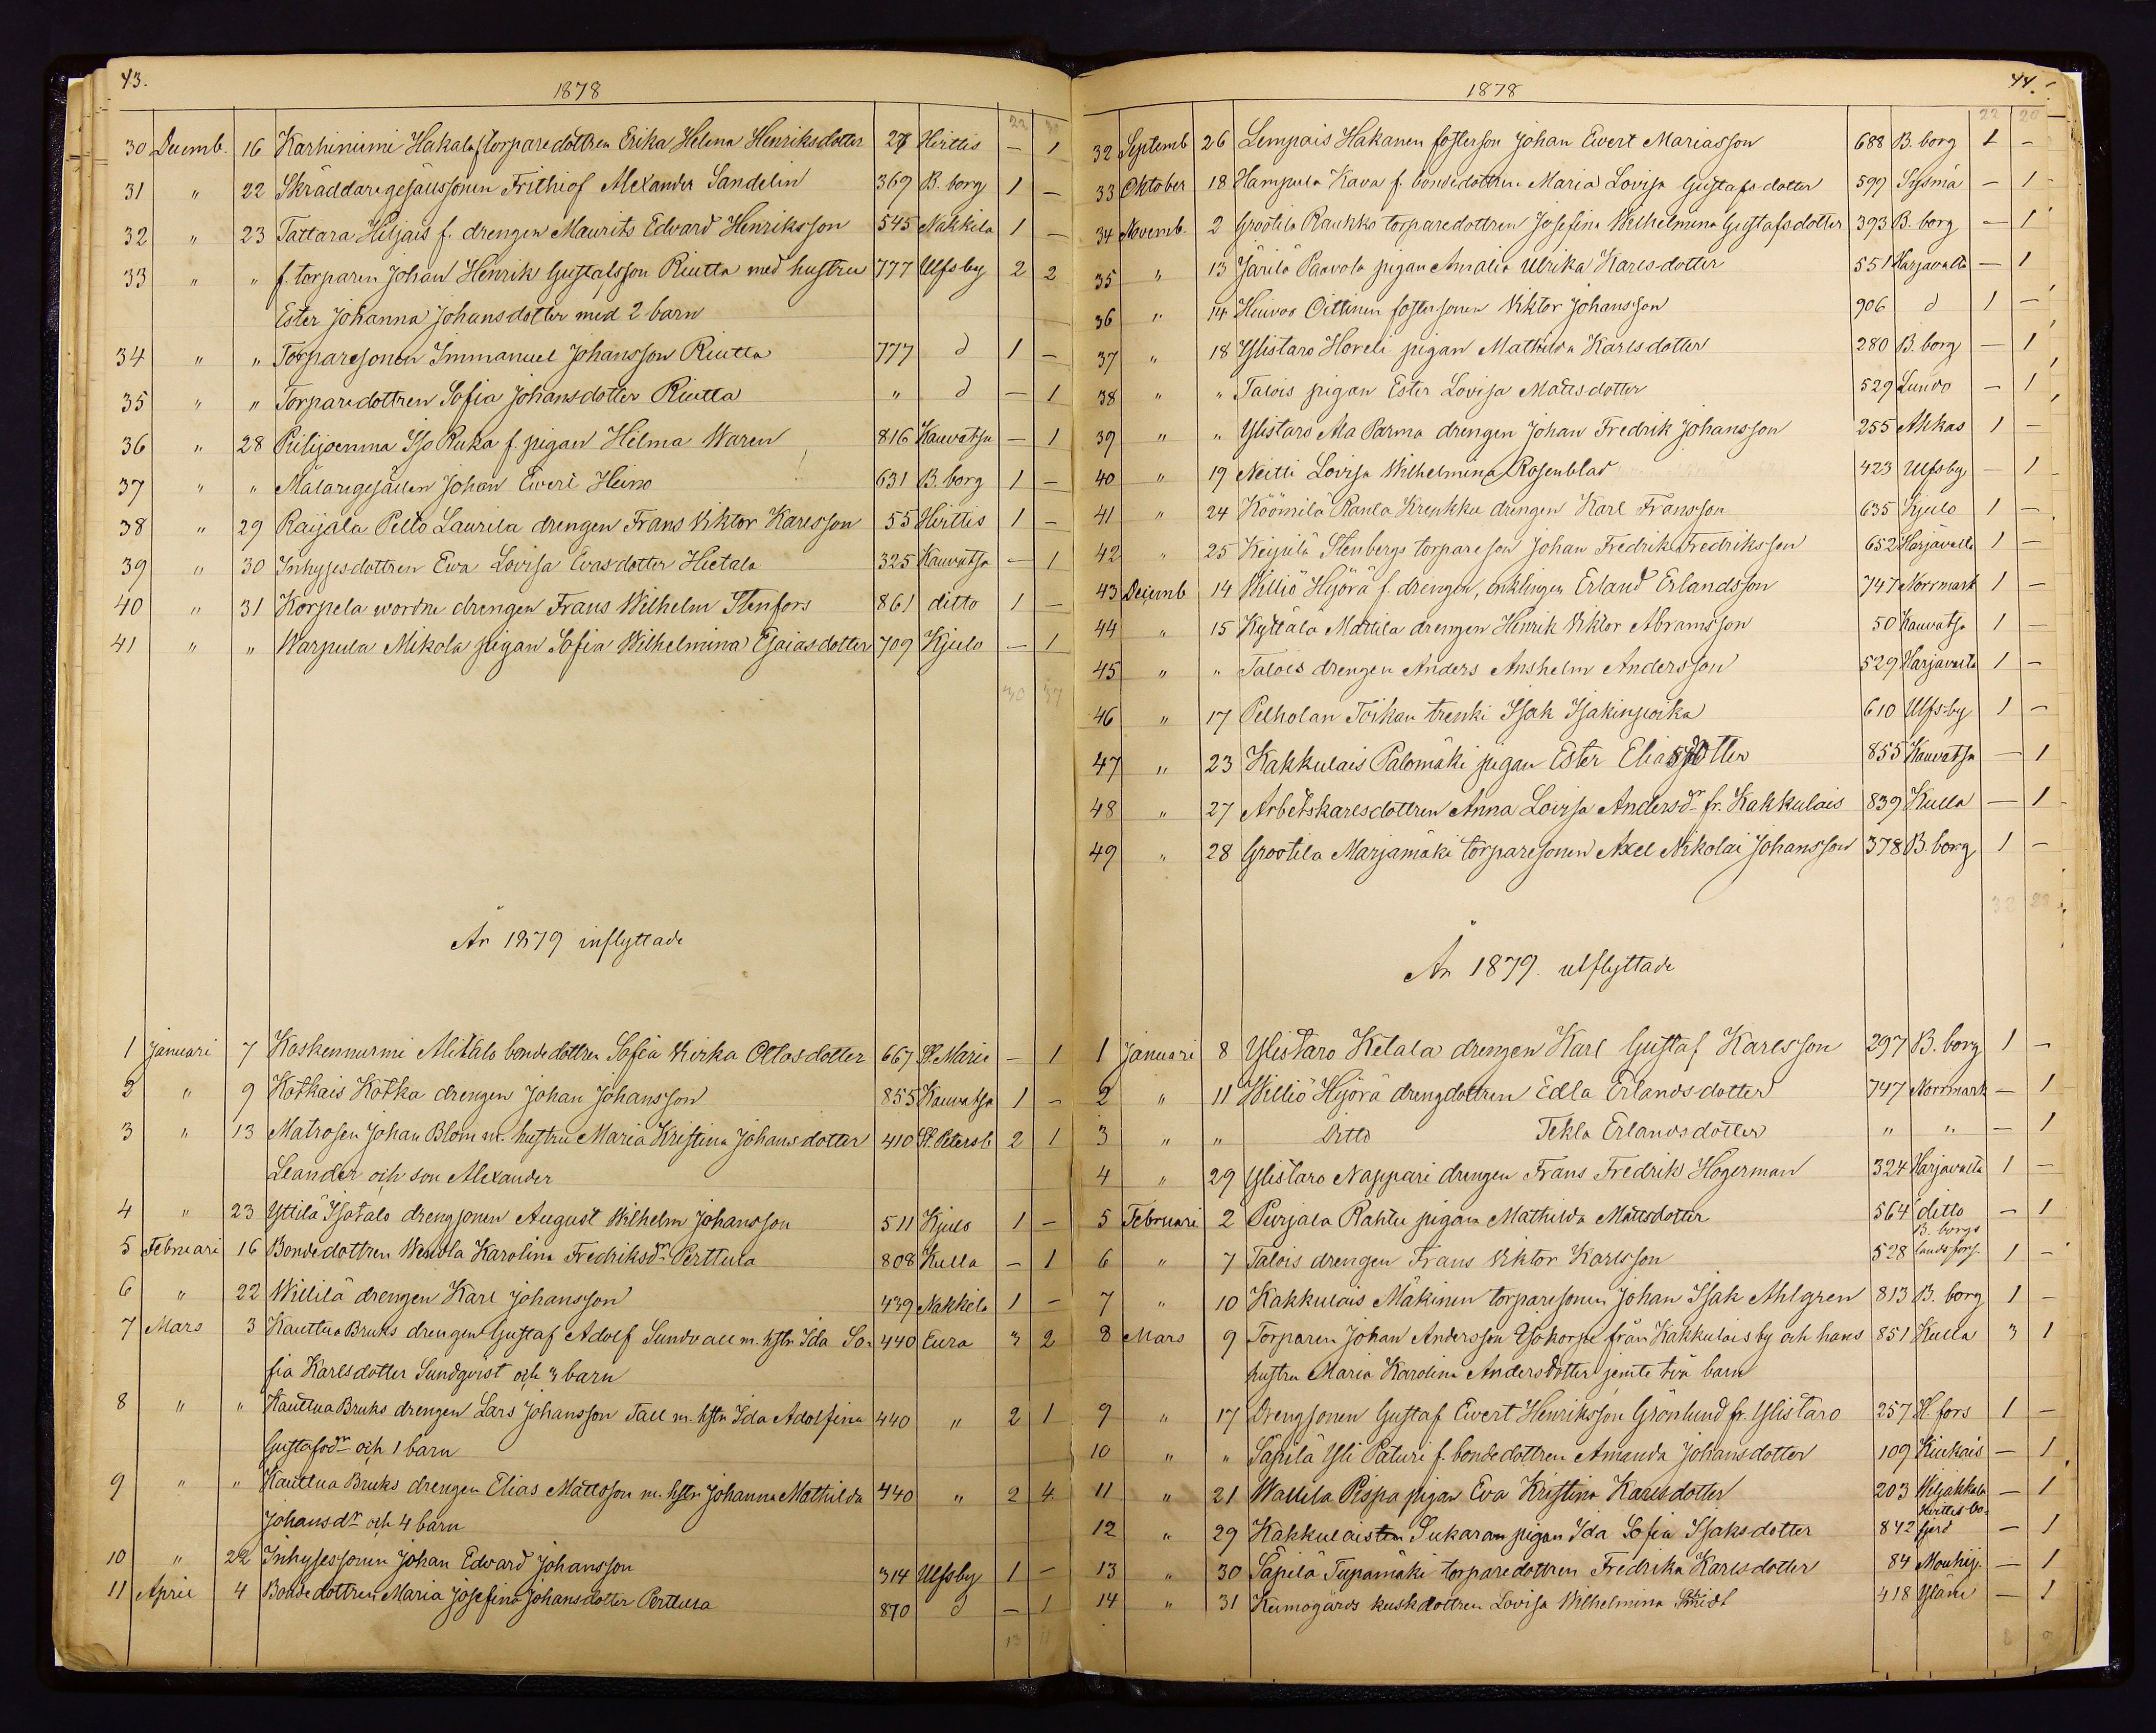 43.
1878
22 30
30 Decemb. 16 Karhiniemi Hakala f. torparedottren Erika Helena Henriksdotter 27 Hvittis — 1
31 " 22 Skräddaregesällssonen Frithiof Alexander Sandelin 369 B. borg 1 —
32 " 23 Tattara Hiljais f. drengen Maurits Edvard Henriksson 545 Nakkila 1 —
33 " " f. torparen Johan Henrik Gustafsson Riutta med hustru 777 Ulfsby 2 2
Ester Johanna Johansdotter med 2 barn
34 " " Torparesonen Immanuel Johansson Riutta 777 d 1 —
35 " " Torparedottren Sofia Johansdotter Riutta " d — 1
36 " 28 Piilijoenma Iso Ruka f. pigan Hilma Waren 816 Kauvatsa — 1
37 " " Målaregesällen Johan Evert Heino 631 B. borg 1 —
38 " 29 Raijala Pelto Laurila drengen Frans Viktor Karlsson 55 Hvittis 1 —
39 " 30 Inhysesdottren Eva Lovisa Evasdotter Hietala 325 Kauvatsa — 1
40 " 31 Korpela wordne drengen Frans Wilhelm Stenfors 861 ditto 1 —
41 " " Warpula Mikola pigan Sofia Wilhelmina Esaiasdotter 709 Kjulo — 1
30 37
År 1879 inflyttade
1 Januari 7 Koskennurmi Alitalo bondedottren Sofia Virka Ottosdotter 667 St Marie — 1
2 " 9 Kotkais Kotka drengen Johan Johansson 855 Kauvatsa 1 —
3 " 13 Matrosen Johan Blom m. hustru Maria Kristina Johansdotter 410 St. Petersb 2 1
Leander och son Alexander
4 " 23 Yttilä Isotalo drengsonen August Wilhelm Johansson 511 Kjulo 1 —
5 Februari 16 Bondedottren Wendla Karolina Fredriksdr Perttula 808 Kulla — 1
6 " 22 Willilä drengen Karl Johansson 439 Nakkila 1 —
7 Mars 3 Kauttua Bruks drengen Gustaf Adolf Sundvall m. hstr Ida So- 440 Eura 3 2
fia Karlsdotter Sundqvist och 3 barn
8 " " Kauttua Bruks drengen Lars Johansson Tall m. hstr Ida Adolfina 440 " 2 1
Gustafsdr och 1 barn
9 " " Kauttua Bruks drengen Elias Mattsson m. hstr Johanna Mathilda 440 " 2 4
Johansdr och 4 barn
10 " 22 Inhysessonen Johan Edvard Johansson 314 Ulfsby 1 —
11 April 4 Bondedottren Maria Josefina Johansdotter Perttula 870 d — 1
13 11
44.
1878
22 20
32 Septemb 26 Lempais Hakanen fosterson Johan Evert Mariasson 688 B. borg 1 —
33 Oktober 18 Hampula Kava f. bondedottren Maria Lovisa Gustafsdotter 599 Sysmä — 1
34 Novemb. 2 Grootila Raukko torparedottren Josefina Wilhelmina Gustafsdotter 393 B. borg — 1
35 " 13 Järilä Paavola pigan Amalia Ulrika Karlsdotter 551 Harjavalta — 1
36 " 14 Heivoo Oittinen fostersonen Viktor Johansson 906 d 1 —
37 " 18 Ylistaro Hoveli pigan Mathilda Karlsdotter 280 B. borg — 1
38 " " Talois pigan Ester Lovisa Mattsdotter 529 Lundo — 1
39 " " Ylistaro Ala Parma drengen Johan Fredrik Johansson 255 Ahkas 1 —
40 " 19 Neitti Lovisa Wilhelmina Rosenblad 423 Ulfsby — 1
41 " 24 Köömilä Raula Kreukku drengen Karl Fransson 635 Kjulo 1 —
42 " 25 Keipilä Stenbergs torpareson Johan Fredrik Fredriksson 652 Harjavalta 1 —
43 Decemb 14 Williö Hyörä f. drengen, enklingen Erland Erlandsson 747 Norrmark 1 —
44 " 15 Kyttälä Mattila drengen Henrik Viktor Abramsson 50 Kauvatsa 1 —
45 " " Talois drengen Anders Anshelm Andersson 529 Harjavalta 1 —
46 " 17 Pelholan Toikan trenki Isak Isakinpoika 610 Ulfsby 1 —
47 " 23 Kakkulais Palomäki pigan Ester Eliasdotter 855 Kauvatsa — 1
48 " 27 Arbetskarlsdottren Anna Lovisa Andersdr fr. Kakkulais 839 Kulla — 1
49 " 28 Grootila Marjamäki torparesonen Axel Nikolai Johansson 378 B. borg 1 —
32 28
År 1879. utflyttade
1 Januari 8 Ylistaro Ketala drengen Karl Gustaf Karlsson 297 B. borg 1 —
2 " 11 Williö Hyörä drengdottren Edla Erlandsdotter 747 Norrmark — 1
3 " " Ditto Tekla Erlandsdotter " " — 1
4 " 29 Ylistaro Nappari drengen Frans Fredrik Hogerman 324 Harjavalta 1 —
5 Februari 2 Purjala Rahtu pigan Mathilda Mattsdotter 564 ditto — 1
6 " 7 Talois drengen Frans Viktor Karlsson 528 B. borgs landsförs. 1 —
7 " 10 Kakkulais Mäkinen torparesonen Johan Isak Ahlgren 813 B. borg 1 —
8 Mars 9 Torparen Johan Andersson Isokorpe från Kakkulais by och hans 851 Kulla 3 1
hustru Maria Karolina Andersdotter jemte två barn
9 " 17 Drengsonen Gustaf Evert Henriksson Grönlund fr. Ylistaro 257 H. fors 1 —
10 " " Säpilä Yli Paturi f. bondedottren Amanda Johansdotter 109 Kiukais — 1
11 " 21 Wallila Pispa pigan Eva Kristina Karlsdotter 203 Wiljakkala — 1
12 " 29 Kakkulaisten Sukaran pigan Ida Sofia Isaksdotter 842 Hvittisbofjerd — 1
13 " 30 Säpilä Tupamäki torparedottren Fredrika Karlsdotter 84 Mouhij. — 1
14 " 31 Kumogårds kuskdottren Lovisa Wilhelmina Schmidt 418 Yläne — 1
8 9